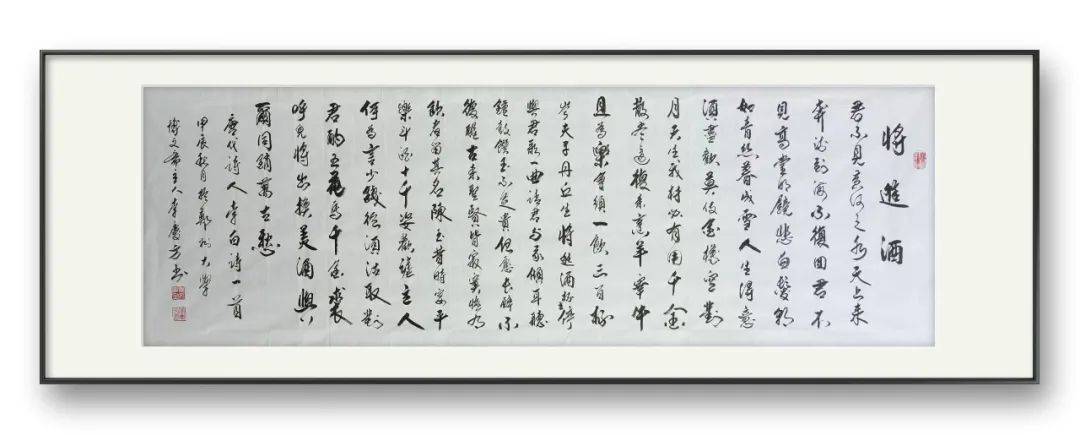 將進酒
君不見黃河之水天上来
奔流到海不復回君不
見高堂明鏡悲白髮朝
如青丝暮成雪人生得意
須盡歡莫使金樽空對
月天生我材必有用千金
散盡還復來烹羊宰牛
且爲樂會須一飲三百杯
岑夫子丹丘生將進酒杯莫停
與君歌一曲請君为我傾耳聽
鐘鼓饌玉不足貴但願长醉不
復醒古来聖賢皆寂寞惟有
飲者留其名陳王昔時宴平
樂斗酒十千恣歡謔主人
何爲言少錢徑須沽取對
君酌五花馬千金裘
呼兒將出換美酒與
爾同銷萬古愁
唐代詩人李白詩一首
甲辰秋月於鄭州大學
博文斋主人李慶方书